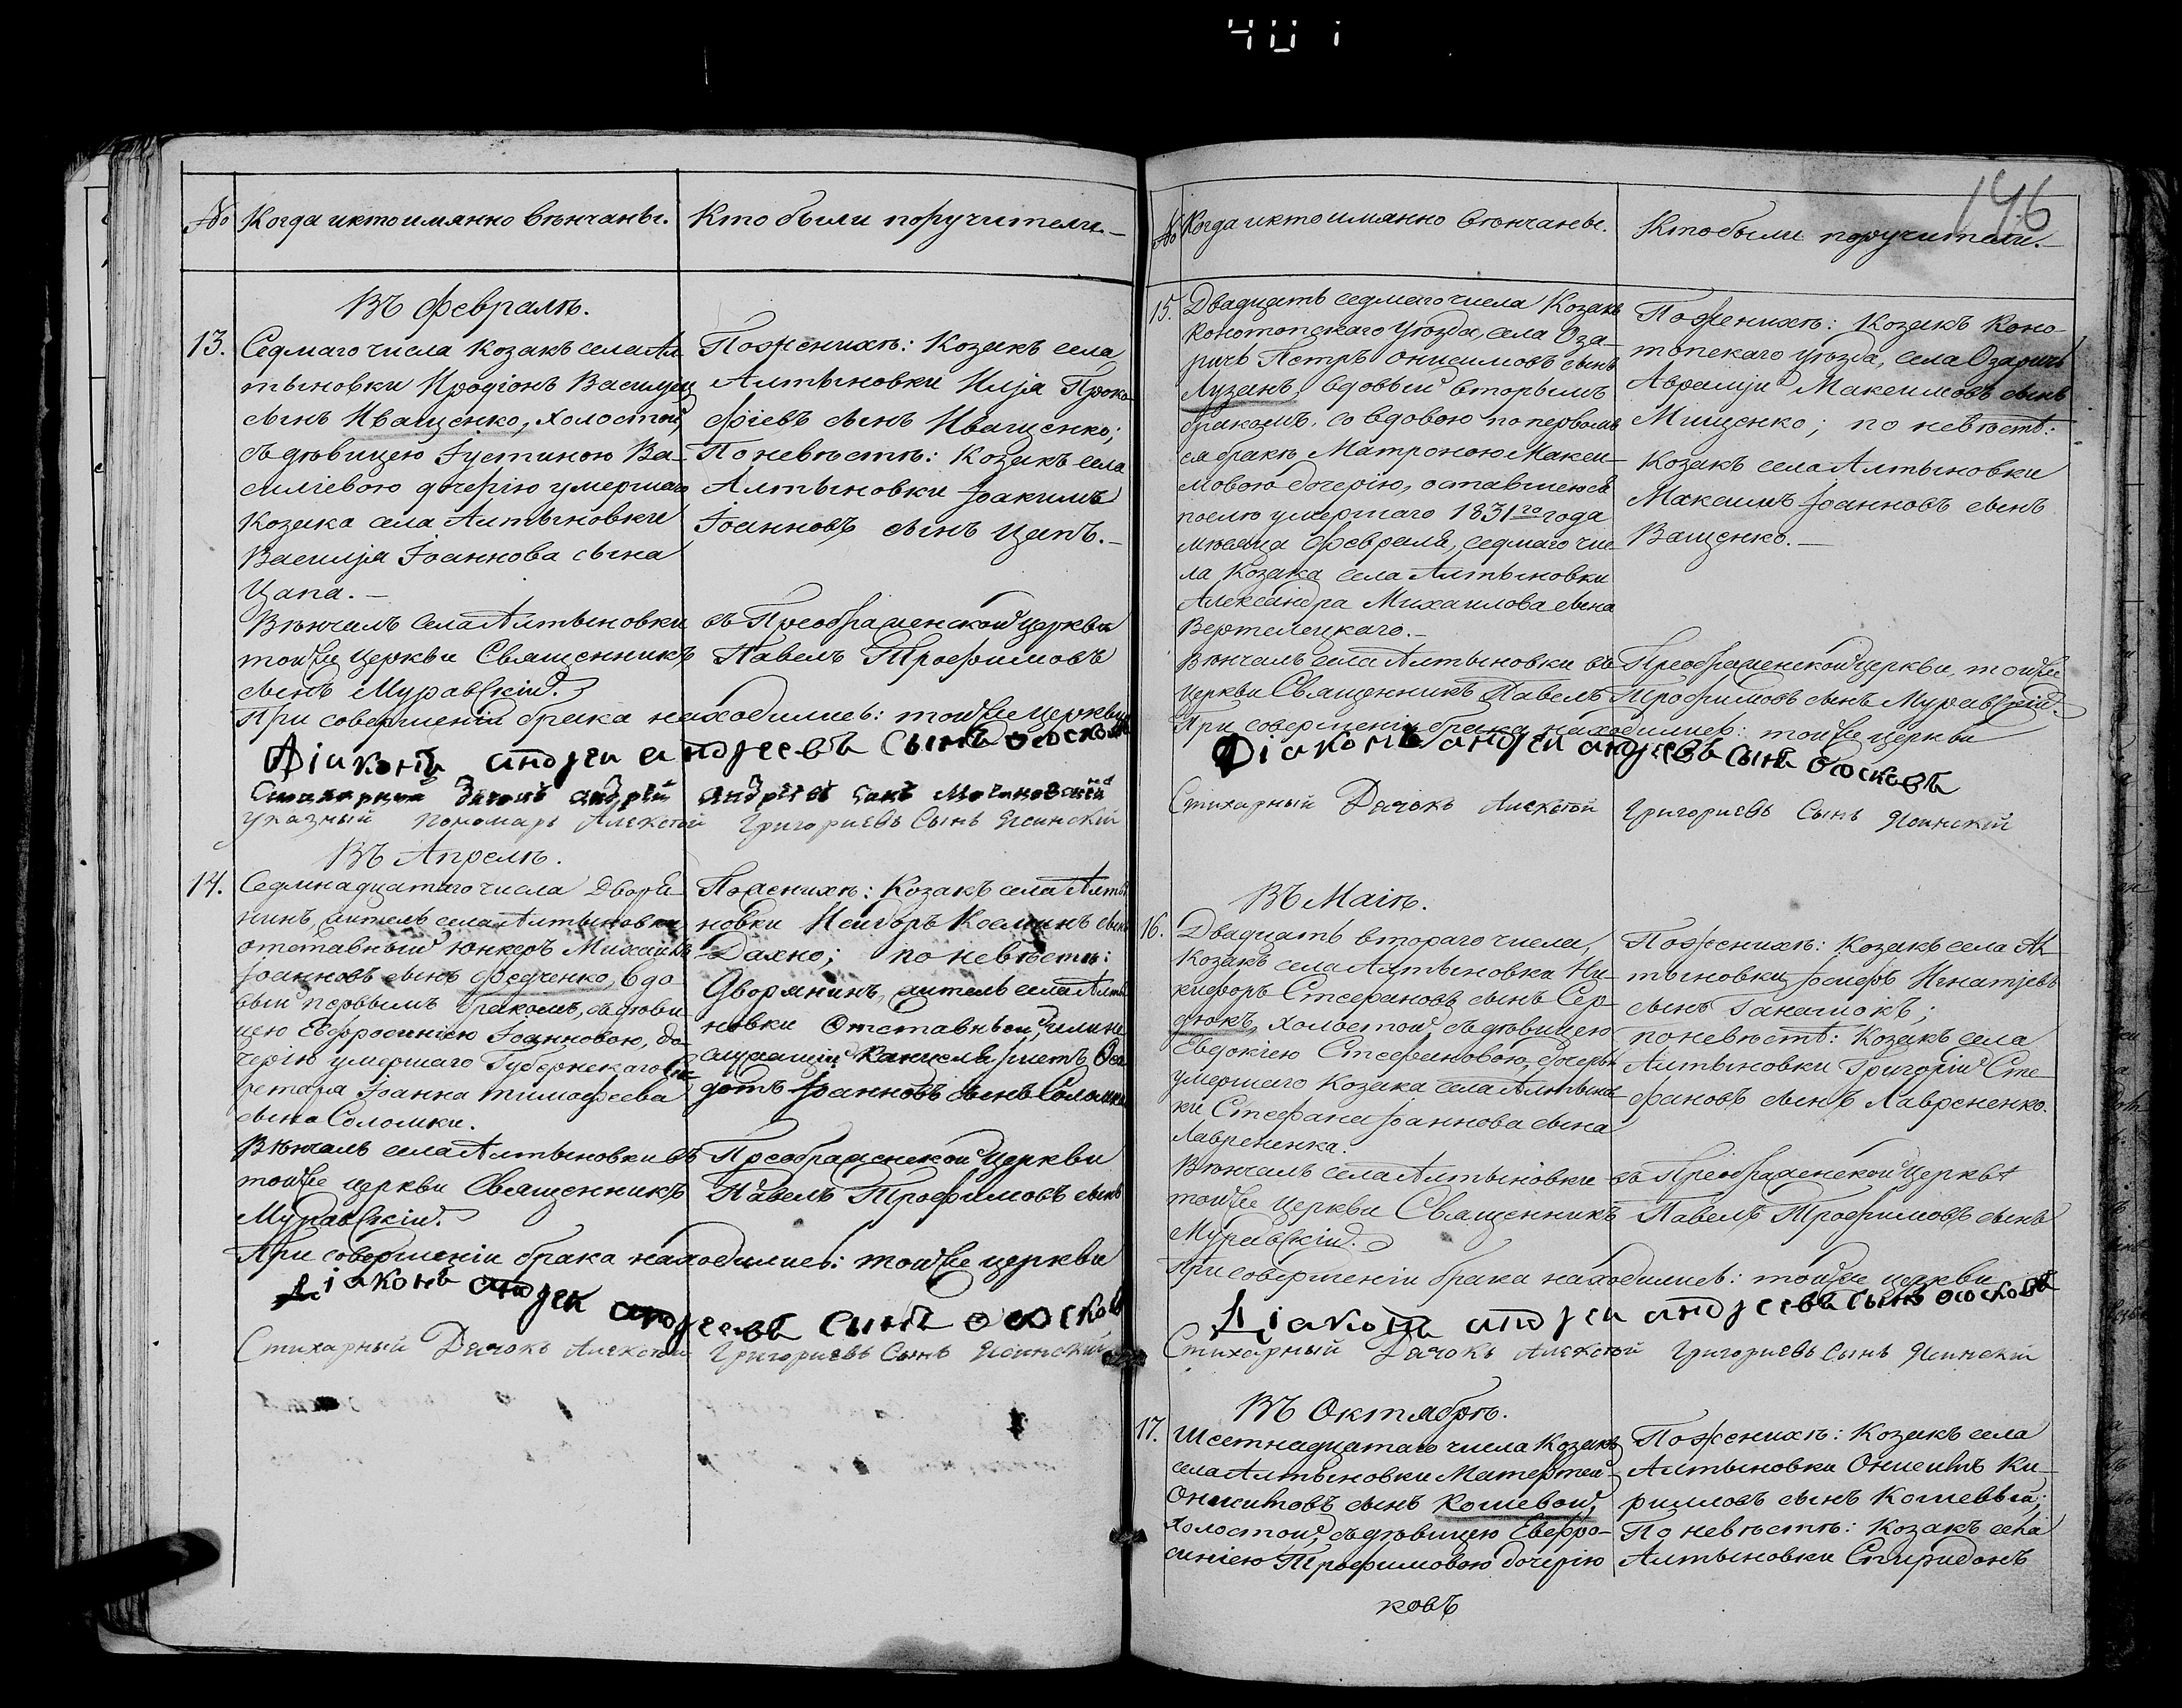 40 1
№ Когда икто имянно вѣнчаны.
Кто были поручители.—
Въ Февралѣ.
13. Седмаго числа Козакъ села Ал-
тыновки Иродіонъ Василіевъ
сынъ Иващенко, холостой,
съ дѣвицею Іустиною Ва-
силіевою дочерію умершаго
Козака села Алтыновки
Василія Іоаннова сына
Цапа.—
По женихѣ: Козакъ села
Алтыновки Илія Проко-
фіевъ сынъ Иващенко;
По невѣстѣ: Козакъ села
Алтыновки Іоакимъ
Іоанновъ сынъ Цапъ.—
Вѣнчалъ села Алтыновки въ Преображенской церкви
тойже церкви Священникъ Павелъ Трофимовъ
сынъ Муравскій.
При совершеніи брака находились: тойже церкви
Діаконъ андреи андреевъ сынъ
Стихарный дячокъ андрей андреевъ сынъ
Указный пономарь Алексѣй Григориевъ Сынъ Ясинскій
Въ Апрелѣ.
14. Седмнадцатаго числа Дворя-
нинъ, житель села Алтыновки
отставный юнкеръ Михаилъ
Іоанновъ сынъ Федченко, вдо-
вый первымъ бракомъ, съ дѣви-
цею Евфросиніею Іоанновою, до-
черію умершаго Губернскаго Сек-
ретара Іоанна Тимофеева
сына Соломки.
По женихѣ: Козакъ села Алты-
новки Исидоръ Косминъ сынъ
Дахно; по невѣстѣ:
Дворянинъ, житель села Алты-
новки Отставный,
служащій Канцеляристъ Фео-
дотъ Іоанновъ сынъ Соломка
Вѣнчалъ села Алтыновки въ Преображенской церкви
тойже церкви Священникъ Павелъ Трофимовъ сынъ
Муравскій.
При совершеніи брака находились: тойже церкви
Діаконъ андреи андреевъ сынъ
Стихарный Дячокъ Алексѣй Григориевъ Сынъ Ясинскій
146
№ Когда икто имянно вѣнчаны.
Кто были поручители.—
15. Двадцать седмаго числа Козакъ
Конотопскаго уѣзда, села Оза-
ричъ Петръ Онисимовъ сынъ
Лузанъ, вдовый вторымъ
бракомъ, со вдовою по первомъ
ея бракѣ Матроною Макси-
мовою дочерію, оставшеюся
послѣ умершаго 1831го года
мѣсяца Февраля, седмаго чис-
ла Козака села Алтыновки
Александра Михаилова сына
Вертелецкаго.—
По женихѣ: Козакъ Коно-
топскаго уѣзда, села Озаричъ
Авраамій Максимовъ сынъ
Мищенко; по невѣстѣ:
Козакъ села Алтыновки
Максимъ Іоанновъ сынъ
Ващенко.—
Вѣнчалъ села Алтыновки въ Преображенской церкви, тойже
церкви Священникъ Павелъ Трофимовъ сынъ Муравскій.
При совершеніи брака находились: тойже церкви
Діаконъ андреи андреевъ сынъ
Стихарный Дячокъ Алексѣй Григориевъ Сынъ Ясинскій
Въ Маіѣ.
16. Двадцать втораго числа,
Козакъ села Алтыновки Ни-
кифоръ Стефановъ сынъ Сер-
дюкъ, холостой, съ дѣвицею
Евдокіею Стефановою, дочерью
умершаго Козака села Алтынов-
ки Стефана Іоаннова сына
Лаврененка.
По женихѣ: Козакъ села Ал-
тыновки Іосифъ Игнатіевъ
сынъ Ганашокъ;
по невѣстѣ: Козакъ села
Алтыновки Григорій Сте-
фановъ сынъ Лаврененко.
Вѣнчалъ села Алтыновки въ Преображенской церкви
тойже церкви Священникъ Павелъ Трофимовъ сынъ
Муравскій.
При совершеніи брака находились: тойже церкви
Діаконъ андреи андреевъ сынъ
Стихарный Дячокъ Алексѣй Григориевъ Сынъ Ясинскій
Въ Октябрѣ.
17. Шестнадцатаго числа Козакъ
села Алтыновки Матерфей
Онисимовъ сынъ Кошевой,
холостой, съ дѣвицею Евфро-
синіею Трофимовою дочерію
По женихѣ: Козакъ села
Алтыновки Онисимъ Ки-
рилловъ сынъ Кошевый;
По невѣстѣ: Козакъ села
Алтыновки Спиридонъ
ковъ